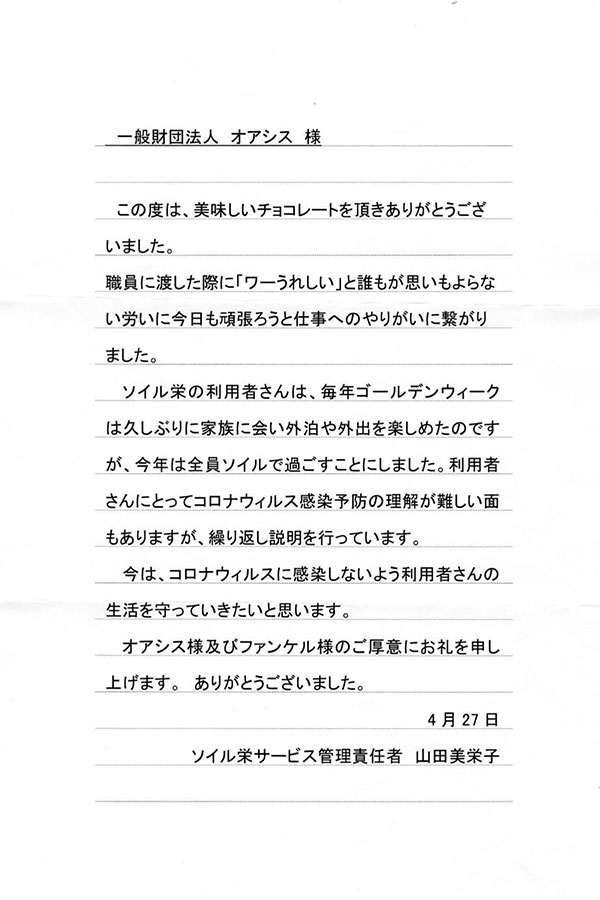 一般財団法人　オアシス　様
　この度は、美味しいチョコレートを頂きありがとうござ
いました。
職員に渡した際に「ワーうれしい」と誰もが思いもよらな
い労いに今日も頑張ろうと仕事へのやりがいに繋がり
ました。
　ソイル栄の利用者さんは、毎年ゴールデンウィーク
は久しぶりに家族に会い外泊や外出を楽しめたのです
が、今年は全員ソイルで過ごすことにしました。利用者
さんにとってコロナウィルス感染予防の理解が難しい面
もありますが、繰り返し説明を行っています。
　今は、コロナウィルスに感染しないよう利用者さんの
生活を守っていきたいと思います。
　オアシス様及びファンケル様のご厚意にお礼を申し
上げます。　ありがとうございました。
4月27日
ソイル栄サービス管理責任者　山田美栄子